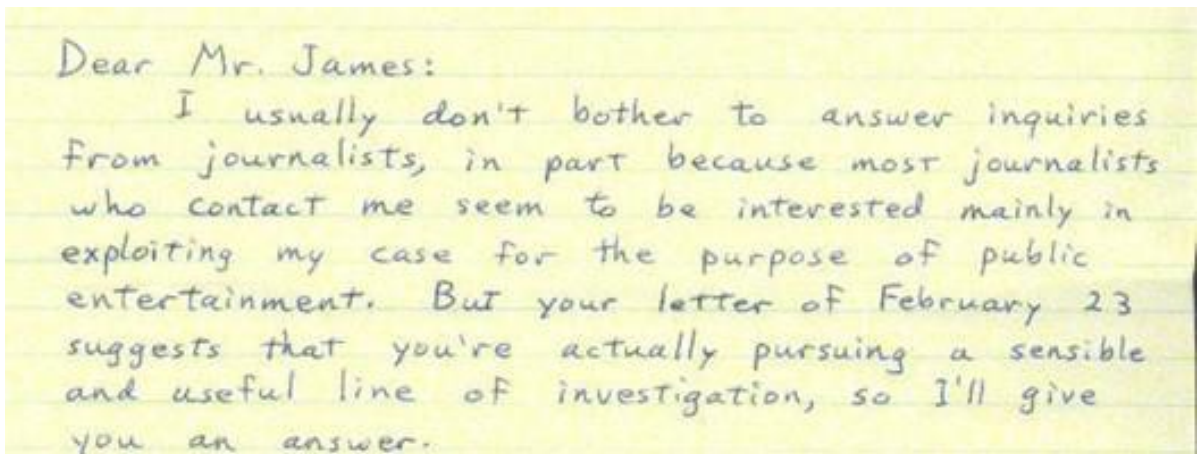 Dear Mr. James:
I usually don't bother to answer inquiries
from journalists, in part because most journalists
who contact me seem to be interested mainly in
exploiting my case for the purpose of public
entertainment. But your letter of February 23
suggests that you're actually pursuing a sensible
and useful line of investigation, so I'll give
you an answer.